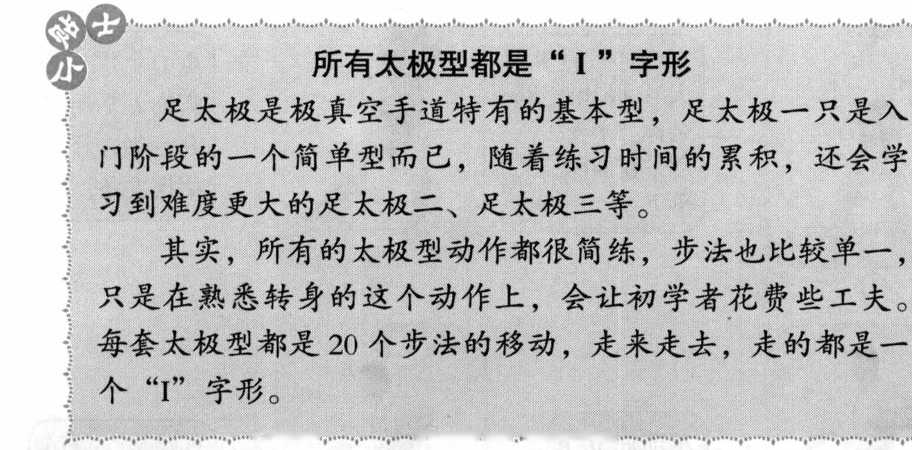 小贴士
所有太极型都是“I”字形
足太极是极真空手道特有的基本型，足太极一只是入
门阶段的一个简单型而已，随着练习时间的累积，还会学
习到难度更大的足太极二、足太极三等。
其实，所有的太极型动作都很简练，步法也比较单一，
只是在熟悉转身的这个动作上，会让初学者花费些工夫。
每套太极型都是 20 个步法的移动，走来走去，走的都是一
个“I”字形。